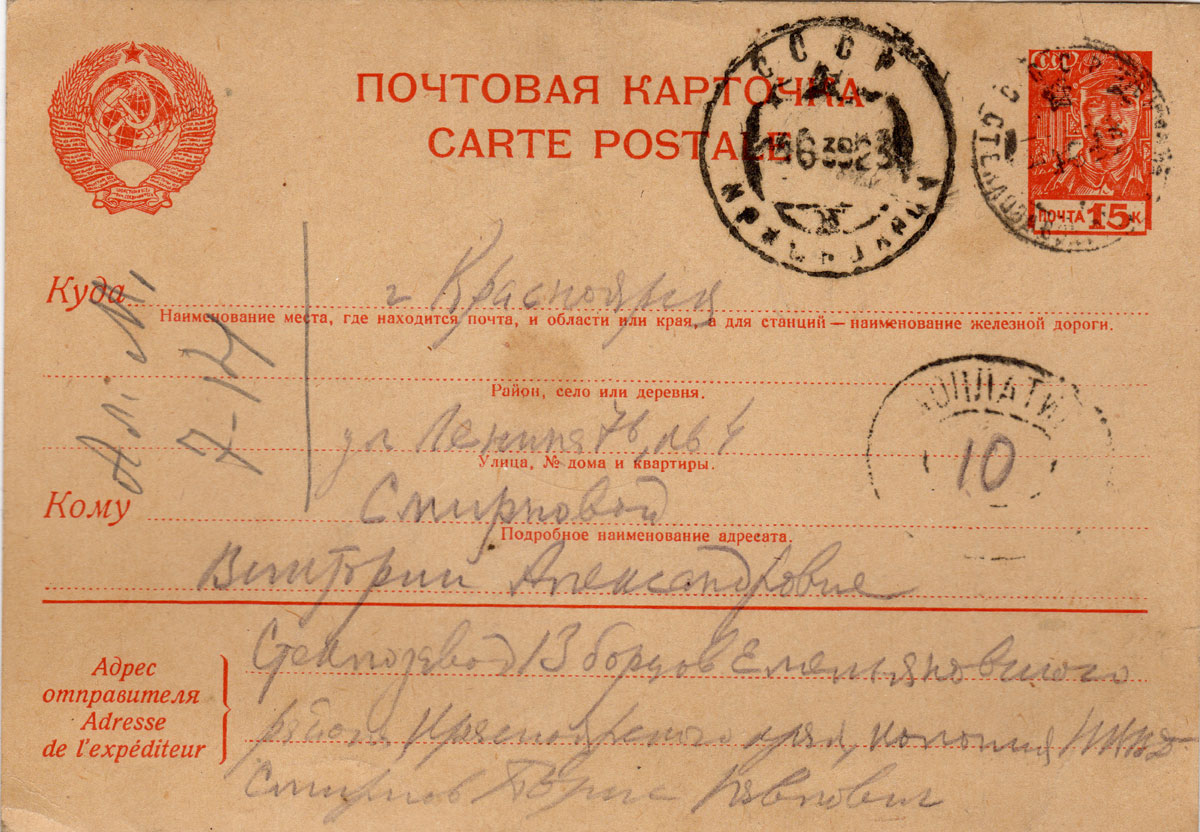 ПОЧТОВАЯ КАРТОЧКА
CARTE POSTALE
СССР
СССР
ПОЧТА 15 К.
Куда г Красноярск
Наименование места, где находится почта, и области или края, а для станций — наименование железной дороги.
Район, село или деревня.
ул Ленина 76, кв 4
Улица, № дома и квартиры.
ДОПЛАТИТЬ
10
Кому Смирновой
Подробное наименование адресата.
Виктории Александровне
Адрес
отправителя
Adresse
de l'expéditeur
Стеклозавод 13 борцов Емельяновского
района Красноярского края, колония НКВД
Смирнов Борис Павлович